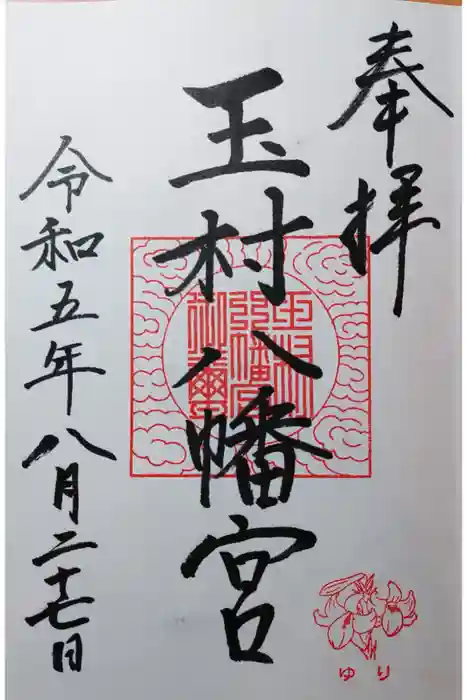 奉拝
玉村八幡宮
令和五年八月二十七日
ゆり